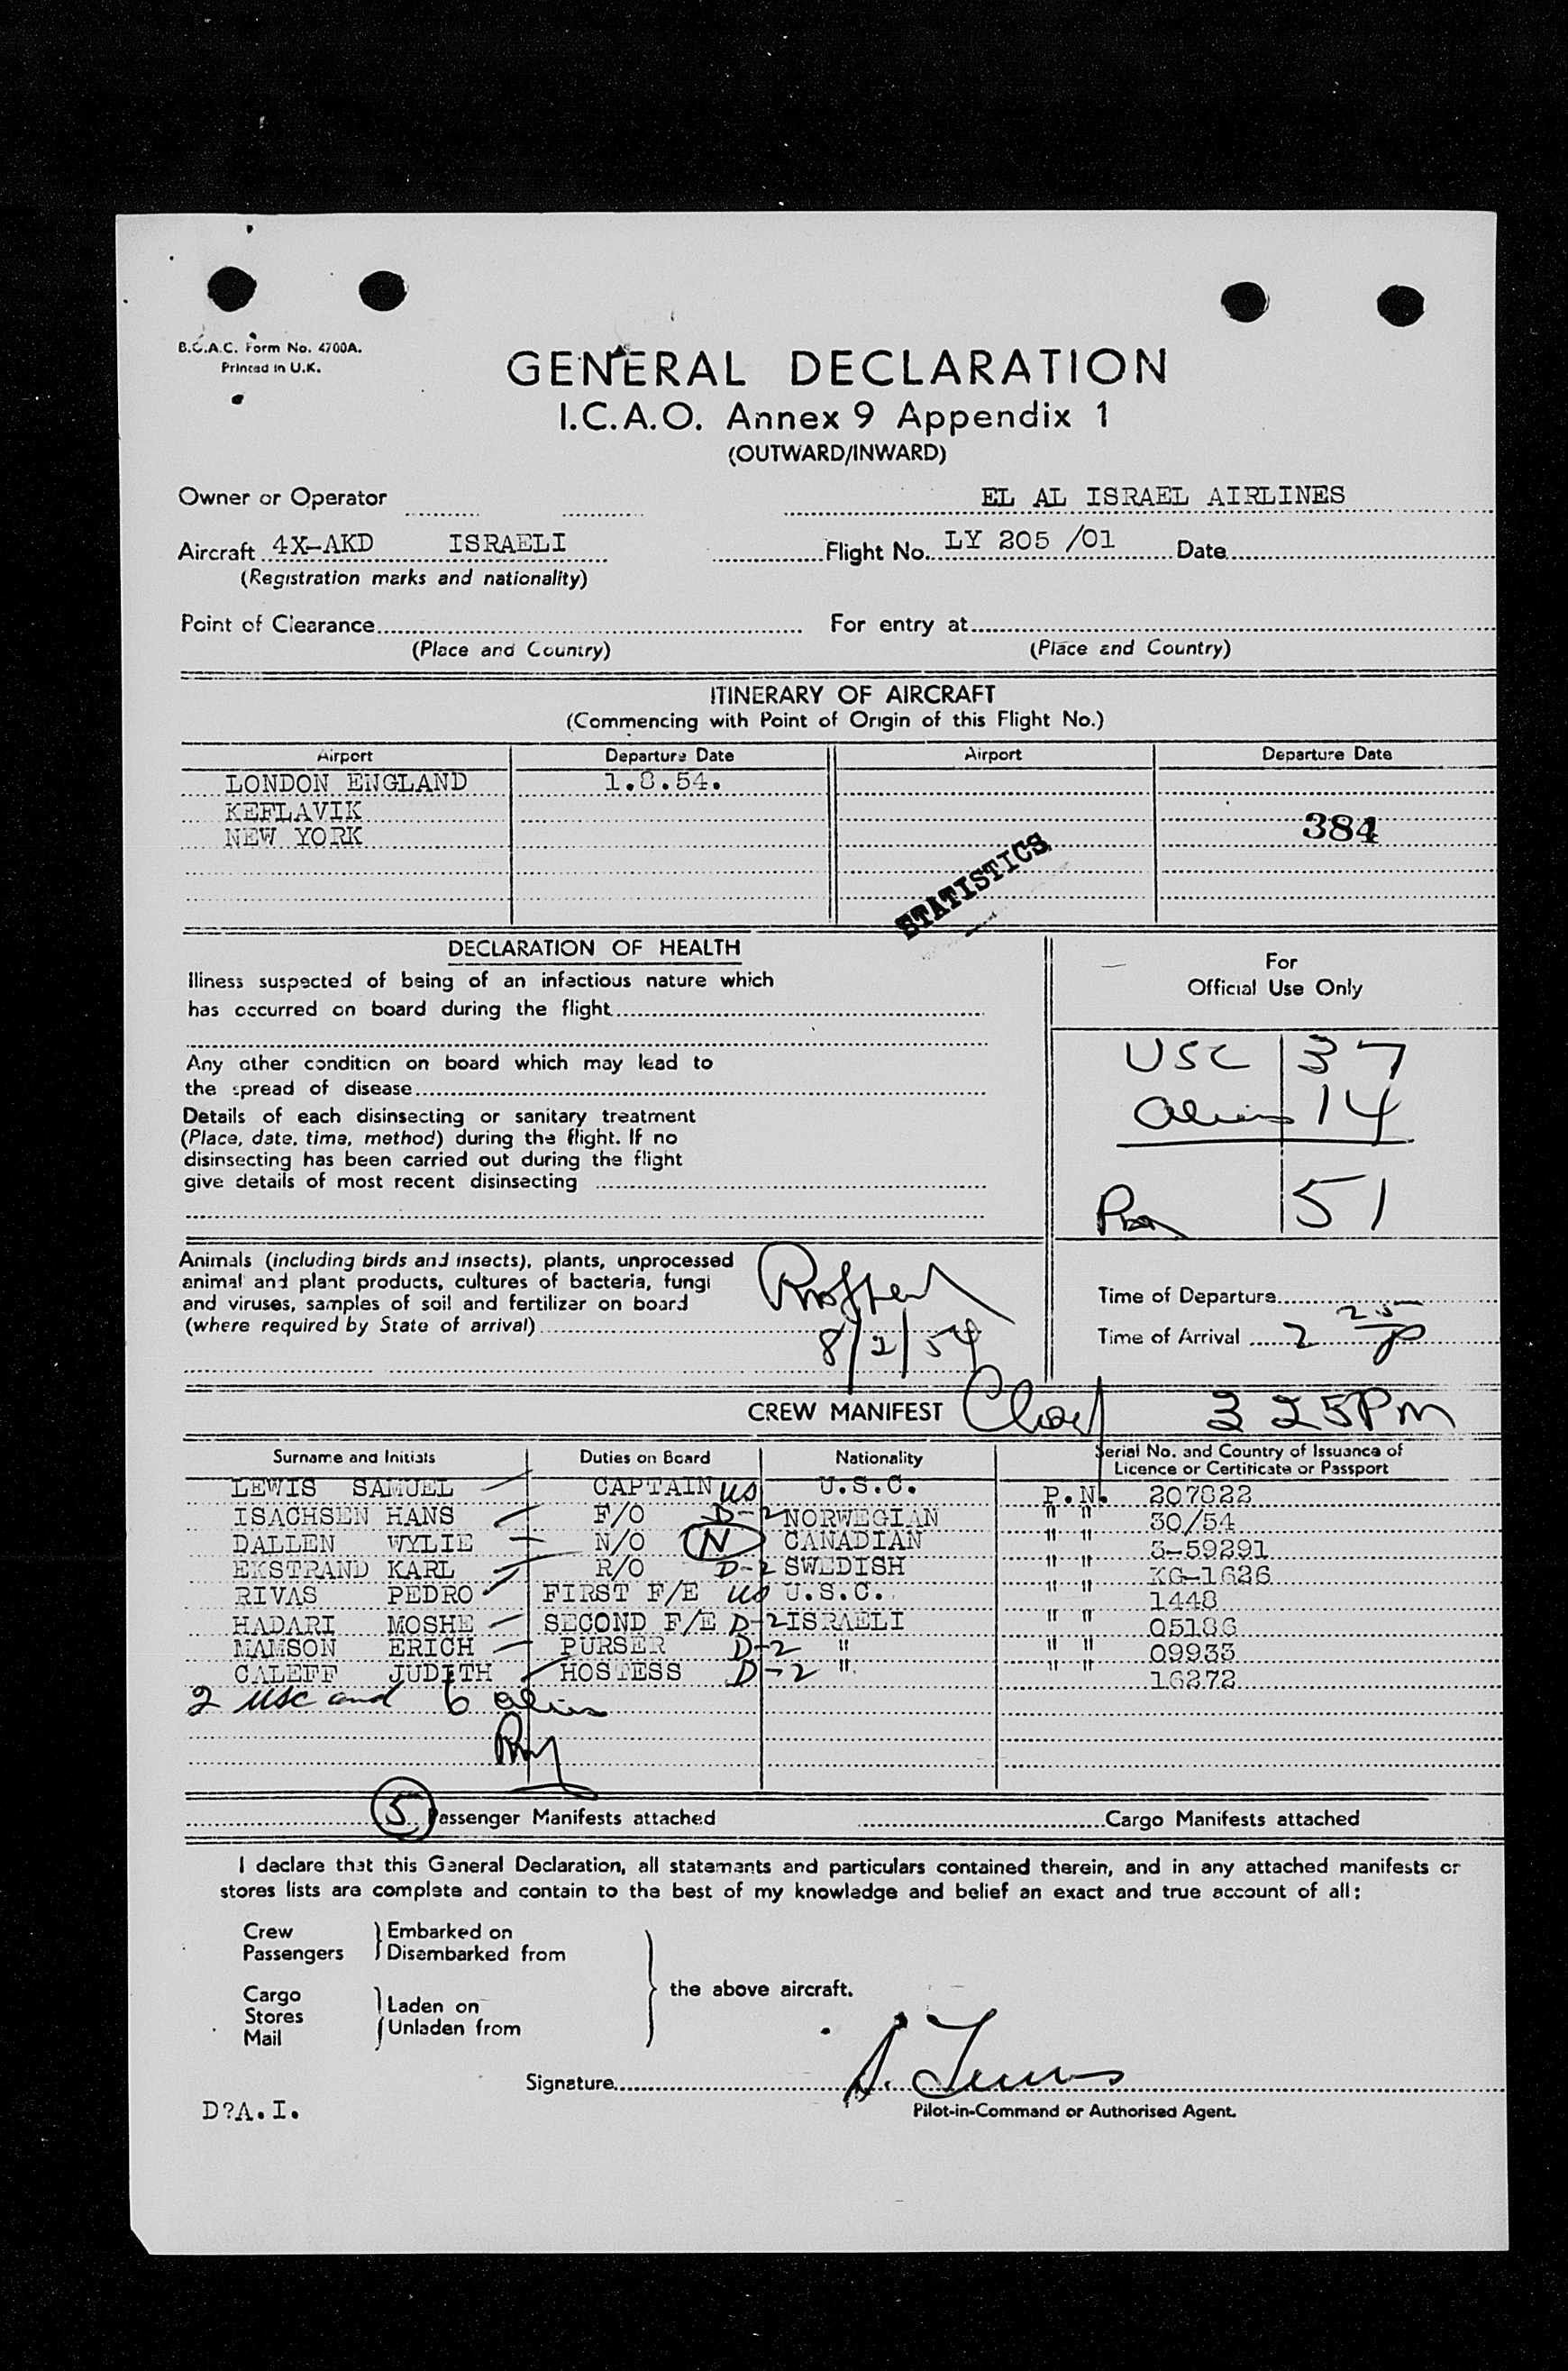 B.O.A.C. Form No. 4700A.
Printed in U.K.
GENERAL DECLARATION
I.C.A.O. Annex 9 Appendix 1
(OUTWARD/INWARD)
Owner or Operator EL AL ISRAEL AIRLINES
Aircraft 4X-AKD ISRAELI Flight No. LY 205 /01 Date
(Registration marks and nationality)
Point of Clearance For entry at
(Place and Country) (Place and Country)
ITINERARY OF AIRCRAFT
(Commencing with Point of Origin of this Flight No.)
Airport Departure Date Airport Departure Date
LONDON ENGLAND 1.8.54.
KEFLAVIK
NEW YORK 384
STATISTICS
DECLARATION OF HEALTH
Illness suspected of being of an infectious nature which
has occurred on board during the flight
Any other condition on board which may lead to
the spread of disease
Details of each disinsecting or sanitary treatment
(Place, date, time, method) during the flight. If no
disinsecting has been carried out during the flight
give details of most recent disinsecting
For
Official Use Only
USC 37
aliens 14
51
Animals (including birds and insects), plants, unprocessed
animal and plant products, cultures of bacteria, fungi
and viruses, samples of soil and fertilizer on board
(where required by State of arrival)
8/2/54
Time of Departure
Time of Arrival 2 25 p
CREW MANIFEST 3 25 PM
Surname and Initials Duties on Board Nationality Serial No. and Country of Issuance of
Licence or Certificate or Passport
LEWIS SAMUEL CAPTAIN US U.S.C. P.N. 207822
ISACHSEN HANS F/O D-2 NORWEGIAN " " 30/54
DALLEN WYLIE N/O N CANADIAN " " 3-59291
EKSTRAND KARL R/O D-2 SWEDISH " " KG-1626
RIVAS PEDRO FIRST F/E US U.S.C. " " 1448
HADARI MOSHE SECOND F/E D-2 ISRAELI " " 05186
MAMSON ERICH PURSER D-2 " " " 09933
CALEFF JUDITH HOSTESS D-2 " " " 16272
2 USC and 6 aliens
5 Passenger Manifests attached Cargo Manifests attached
I declare that this General Declaration, all statements and particulars contained therein, and in any attached manifests or
stores lists are complete and contain to the best of my knowledge and belief an exact and true account of all:
Crew Embarked on
Passengers Disembarked from
the above aircraft.
Cargo
Stores Laden on
Mail Unladen from
Signature S. Lewis
Pilot-in-Command or Authorised Agent.
D?A.I.